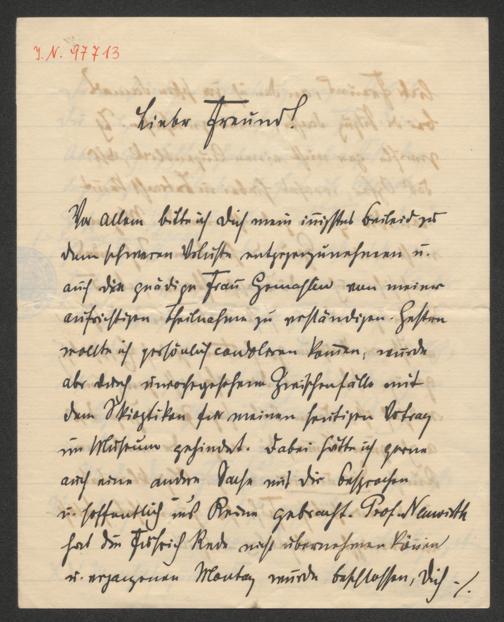 J. N. 97713
Lieber Freund!
Vor allem bitte ich Dich mein innigstes Beileid zu
dem schweren Verluste entgegenzunehmen u.
auch die gnädige Frau Gemahlin von meiner
aufrichtigen Theilnahme zu verständigen. Gestern
wollte ich persönlich condoliren kommen, wurde
aber durch unvorhergesehene Zwischenfälle mit
dem Skioptikon für meinen heutigen Vortrag
im Museum gehindert. Dabei hätte ich gerne
auch eine andere Sache mit Dir besprochen
u. hoffentlich ins Reine gebracht. Prof. Neuwirth
hat die Rede nicht übernehmen können
u. vergangenen Montag wurde beschlossen, Dich -/.